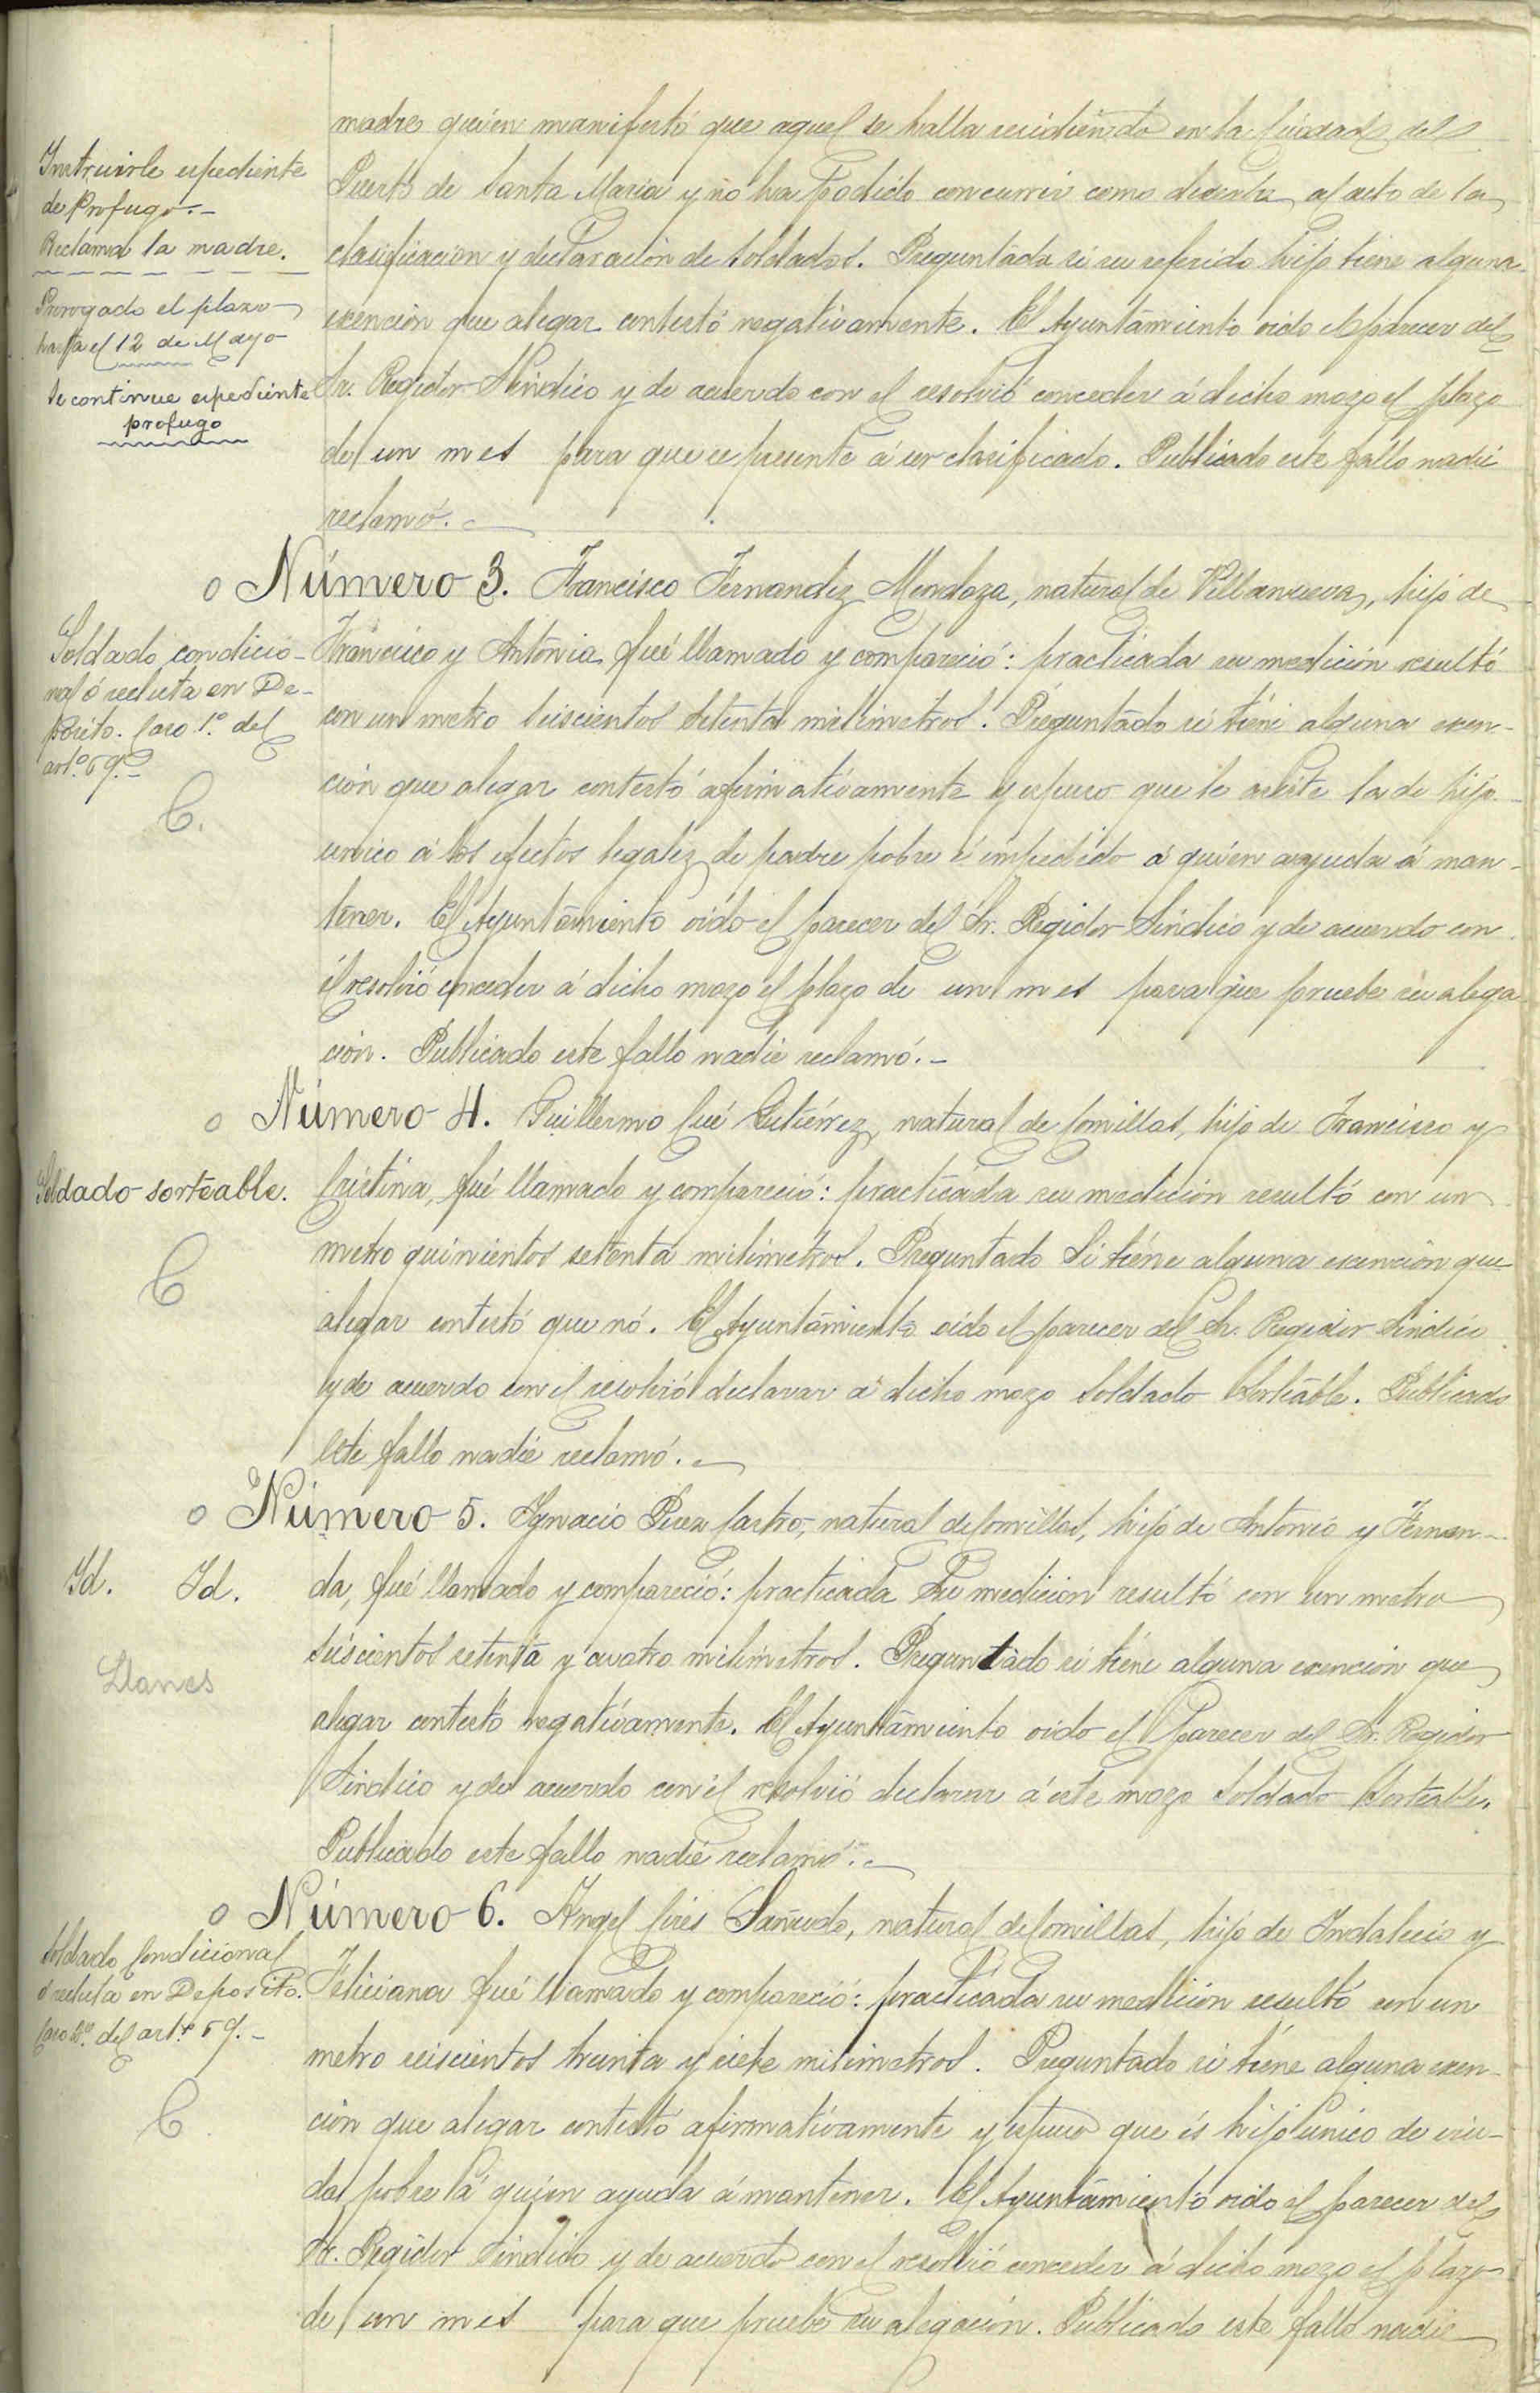 madre quien manifestó que aquel se halla residiendo en la Ciudad del
Puerto de Santa Maria y no ha podido concurrir como deseaba al acto de la
clasificacion y declaración de Soldados. Preguntada si su referido hijo tiene alguna
exencion que alegar contestó negativamente. El Ayuntamiento oido el parecer del
Sr. Regidor Síndico y de acuerdo con el resolvió conceder á dicho mozo el plazo
de un mes para que se presente á ser clasificado. Publicado este fallo nadie
reclamó.
Instruirle espediente
de Profugo.-
Reclama la madre.
Prorogado el plazo
hasta el 12 de Mayo
Se continue espediente
profugo
Número 3. Francisco Fernandez Mendoza, natural de Villanueva, hijo de
Francisco y Antonia fué llamado y compareció: practicada su medición resultó
con un metro seiscientos setenta milimetros. Preguntado si tiene alguna exen-
ción que alegar contestó afirmativamente y espuso que le asiste la de hijo
unico á los efectos legales de padre pobre é impedido á quien ayuda á man-
tener. El Ayuntamiento oido el parecer del Sr. Regidor Síndico y de acuerdo con
él resolvió conceder á dicho mozo el plazo de un mes para que pruebe su alega
ción. Publicado este fallo nadie reclamó.-
Soldado condicio-
nal ó recluta en De-
pósito. Caso 1.º del
art.º 69.-
C.
Número 4. Guillermo Cué Gutiérrez, natural de Comillas, hijo de Francisco y
Cristina, fué llamado y compareció: practicada su medición resultó con un
metro quinientos setenta milimetros. Preguntado si tiene alguna exención que
alegar contestó que nó. El Ayuntamiento oido el parecer del Sr. Regidor Sindico
y de acuerdo con el resolvió declarar á dicho mozo Soldado Sorteable. Publicado
este fallo nadie reclamó.-
Soldado sorteable.
C
Número 5. Ygnacio Perez Castro, natural de Comillas, hijo de Antonio y Fernan-
da, fué llamado y compareció: practicada su medición resultó con un metro
seiscientos setenta y cuatro milimetros. Preguntado si tiene alguna exencion que
alegar contestó negativamente. El Ayuntamiento oido el parecer del Sr. Regidor
Sindico y de acuerdo con él resolvió declarar á este mozo Soldado Sorteable.
Publicado este fallo nadie reclamó.-
Yd. Yd.
Llanes
Número 6. Angel Cires Sañudo, natural de Comillas, hijo de Indalecio y
Feliciana fué llamado y compareció: practicada su medición resultó con un
metro seiscientos treinta y siete milimetros. Preguntado si tiene alguna exen-
ción que alegar contestó afirmativamente y espuso que és hijo único de viu-
da pobre á quien ayuda á mantener. El Ayuntamiento oido el parecer del
Sr. Regidor Sindico y de acuerdo con el resolvió conceder á dicho mozo el plazo
de un mes para que pruebe su alegación. Publicado este fallo nadie
Soldado Condicional
ó recluta en Deposito.
Caso 2º del art.º 69.-
C.